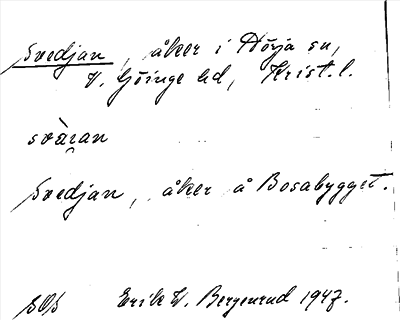 Svedjan, åker i Hörja sn,
V. Göinge hd, Krist. l.
svàran
Svedjan, åker å Bosabygget.
SOS Erik W. Bergenrud 1947.